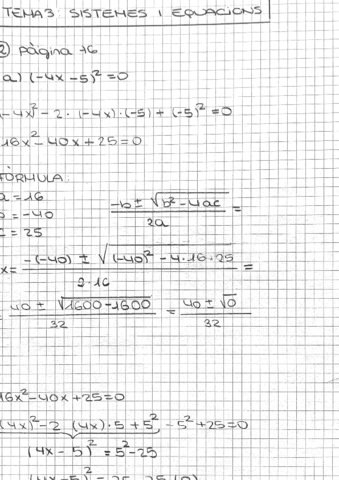 TEMA 3: SISTEMES I EQUACIONS
2) pàgina 76
a) (-4x-5)² = 0
-4x)² - 2 · (-4x) · (-5) + (-5)² = 0
16x² - 40x + 25 = 0
FÒRMULA:
a = 16
b = -40
c = 25
-b ± √b² - 4ac / 2a =
x = -(-40) ± √(-40)² - 4·16·25 / 2·16 =
= 40 ± √1600-1600 / 32 = 40 ± √0 / 32
16x² - 40x + 25 = 0
(4x)² - 2 (4x) · 5 + 5² - 5² + 25 = 0
(4x - 5)² = 5² - 25